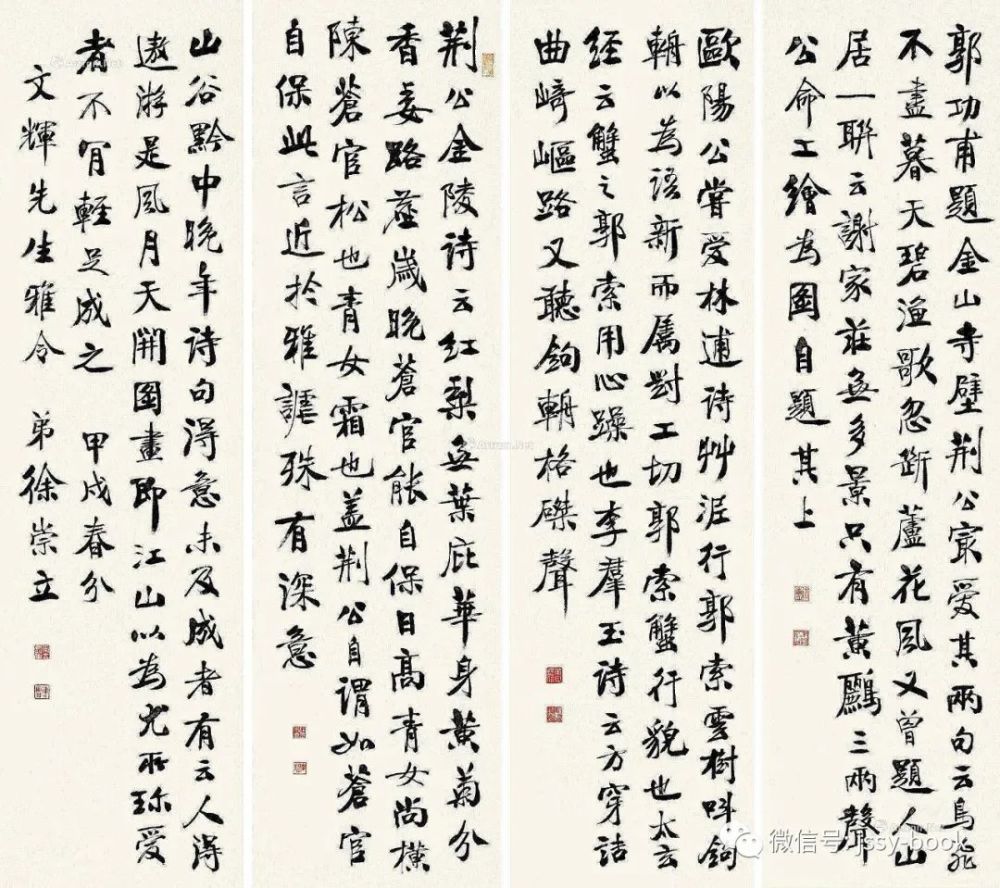 郭功甫題金山寺壁荆公冣愛其兩句云鳥飛
不盡暮天碧漁歌忽斷蘆花風又曾題人山
居一聯云謝家莊無多景只有黄鸝三兩聲
公命工繪為圖自題其上
歐陽公嘗愛林逋詩艸泥行郭索雲樹叫鉤
輈以為語新而屬對工切郭索蟹行貌也太玄
經云蟹之郭索用心躁也李羣玉詩云方穿詰
曲崎嶇路又聽鉤輈格磔聲
荆公金陵詩云紅梨無葉庇華身黄菊分
香委路塵歲晚蒼官能自保日高青女尚橫
陳蒼官松也青女霜也蓋荆公自謂如蒼官
自保此言近於雅謔殊有深意
山谷黔中晚年詩句得意未及成者有云人得
遨遊是風月天開圖畫即江山以為尤所珍愛
者不肎輕足成之 甲戌春分
文輝先生雅令 弟徐崇立
微信号: jssy-book
Artron.Net